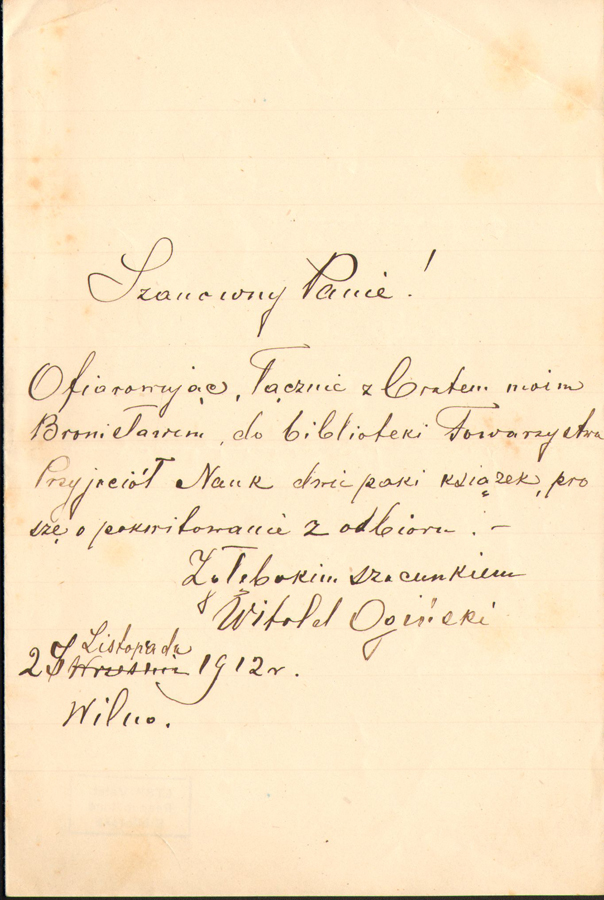 Szanowny Panie!
Ofiarowując, łącznie z bratem moim
Bronisławem, do biblioteki Towarzystwa
Przyjaciół Nauk dwie paki książek, pro
szę o pokwitowanie z odbioru. –
Z głębokim szacunkiem
Witold Ogiński
Listopada
Września 1912 r.
Wilno.